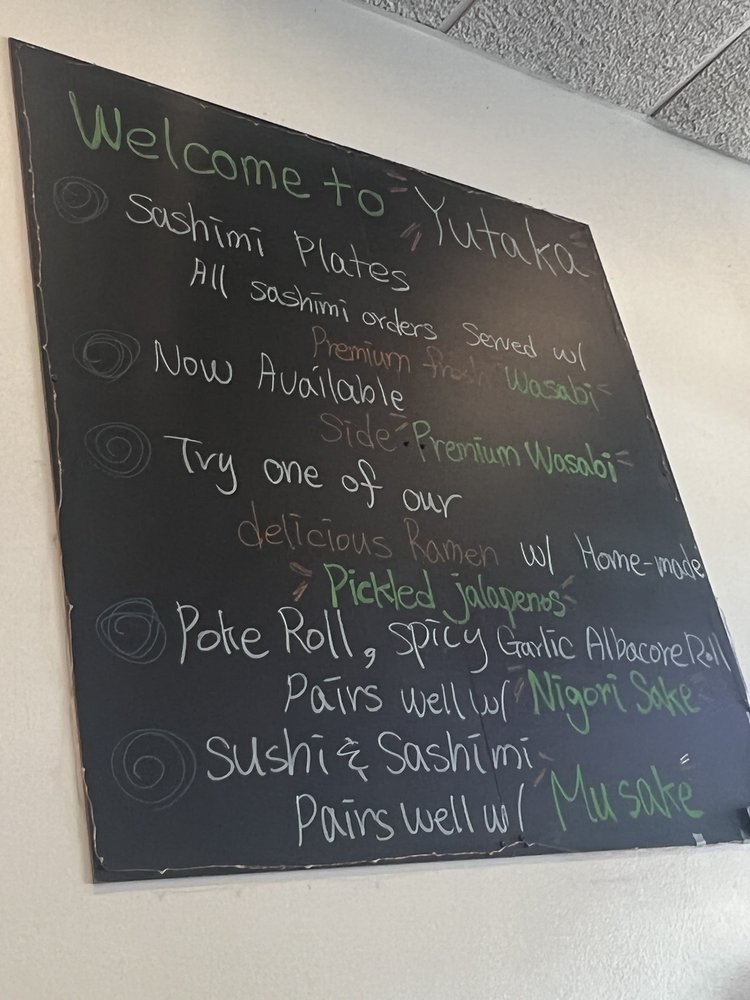 Welcome to Yutaka
Sashimi Plates
All sashimi orders Served w/
Premium fresh Wasabi
Now Available
Side Premium Wasabi
Try one of our
delicious Ramen w/ Home-made
Pickled jalapenos
Poke Roll, Spicy Garlic Albacore Roll
Pairs well w/ Nigori Sake
Sushi & Sashimi
Pairs well w/ Mu sake